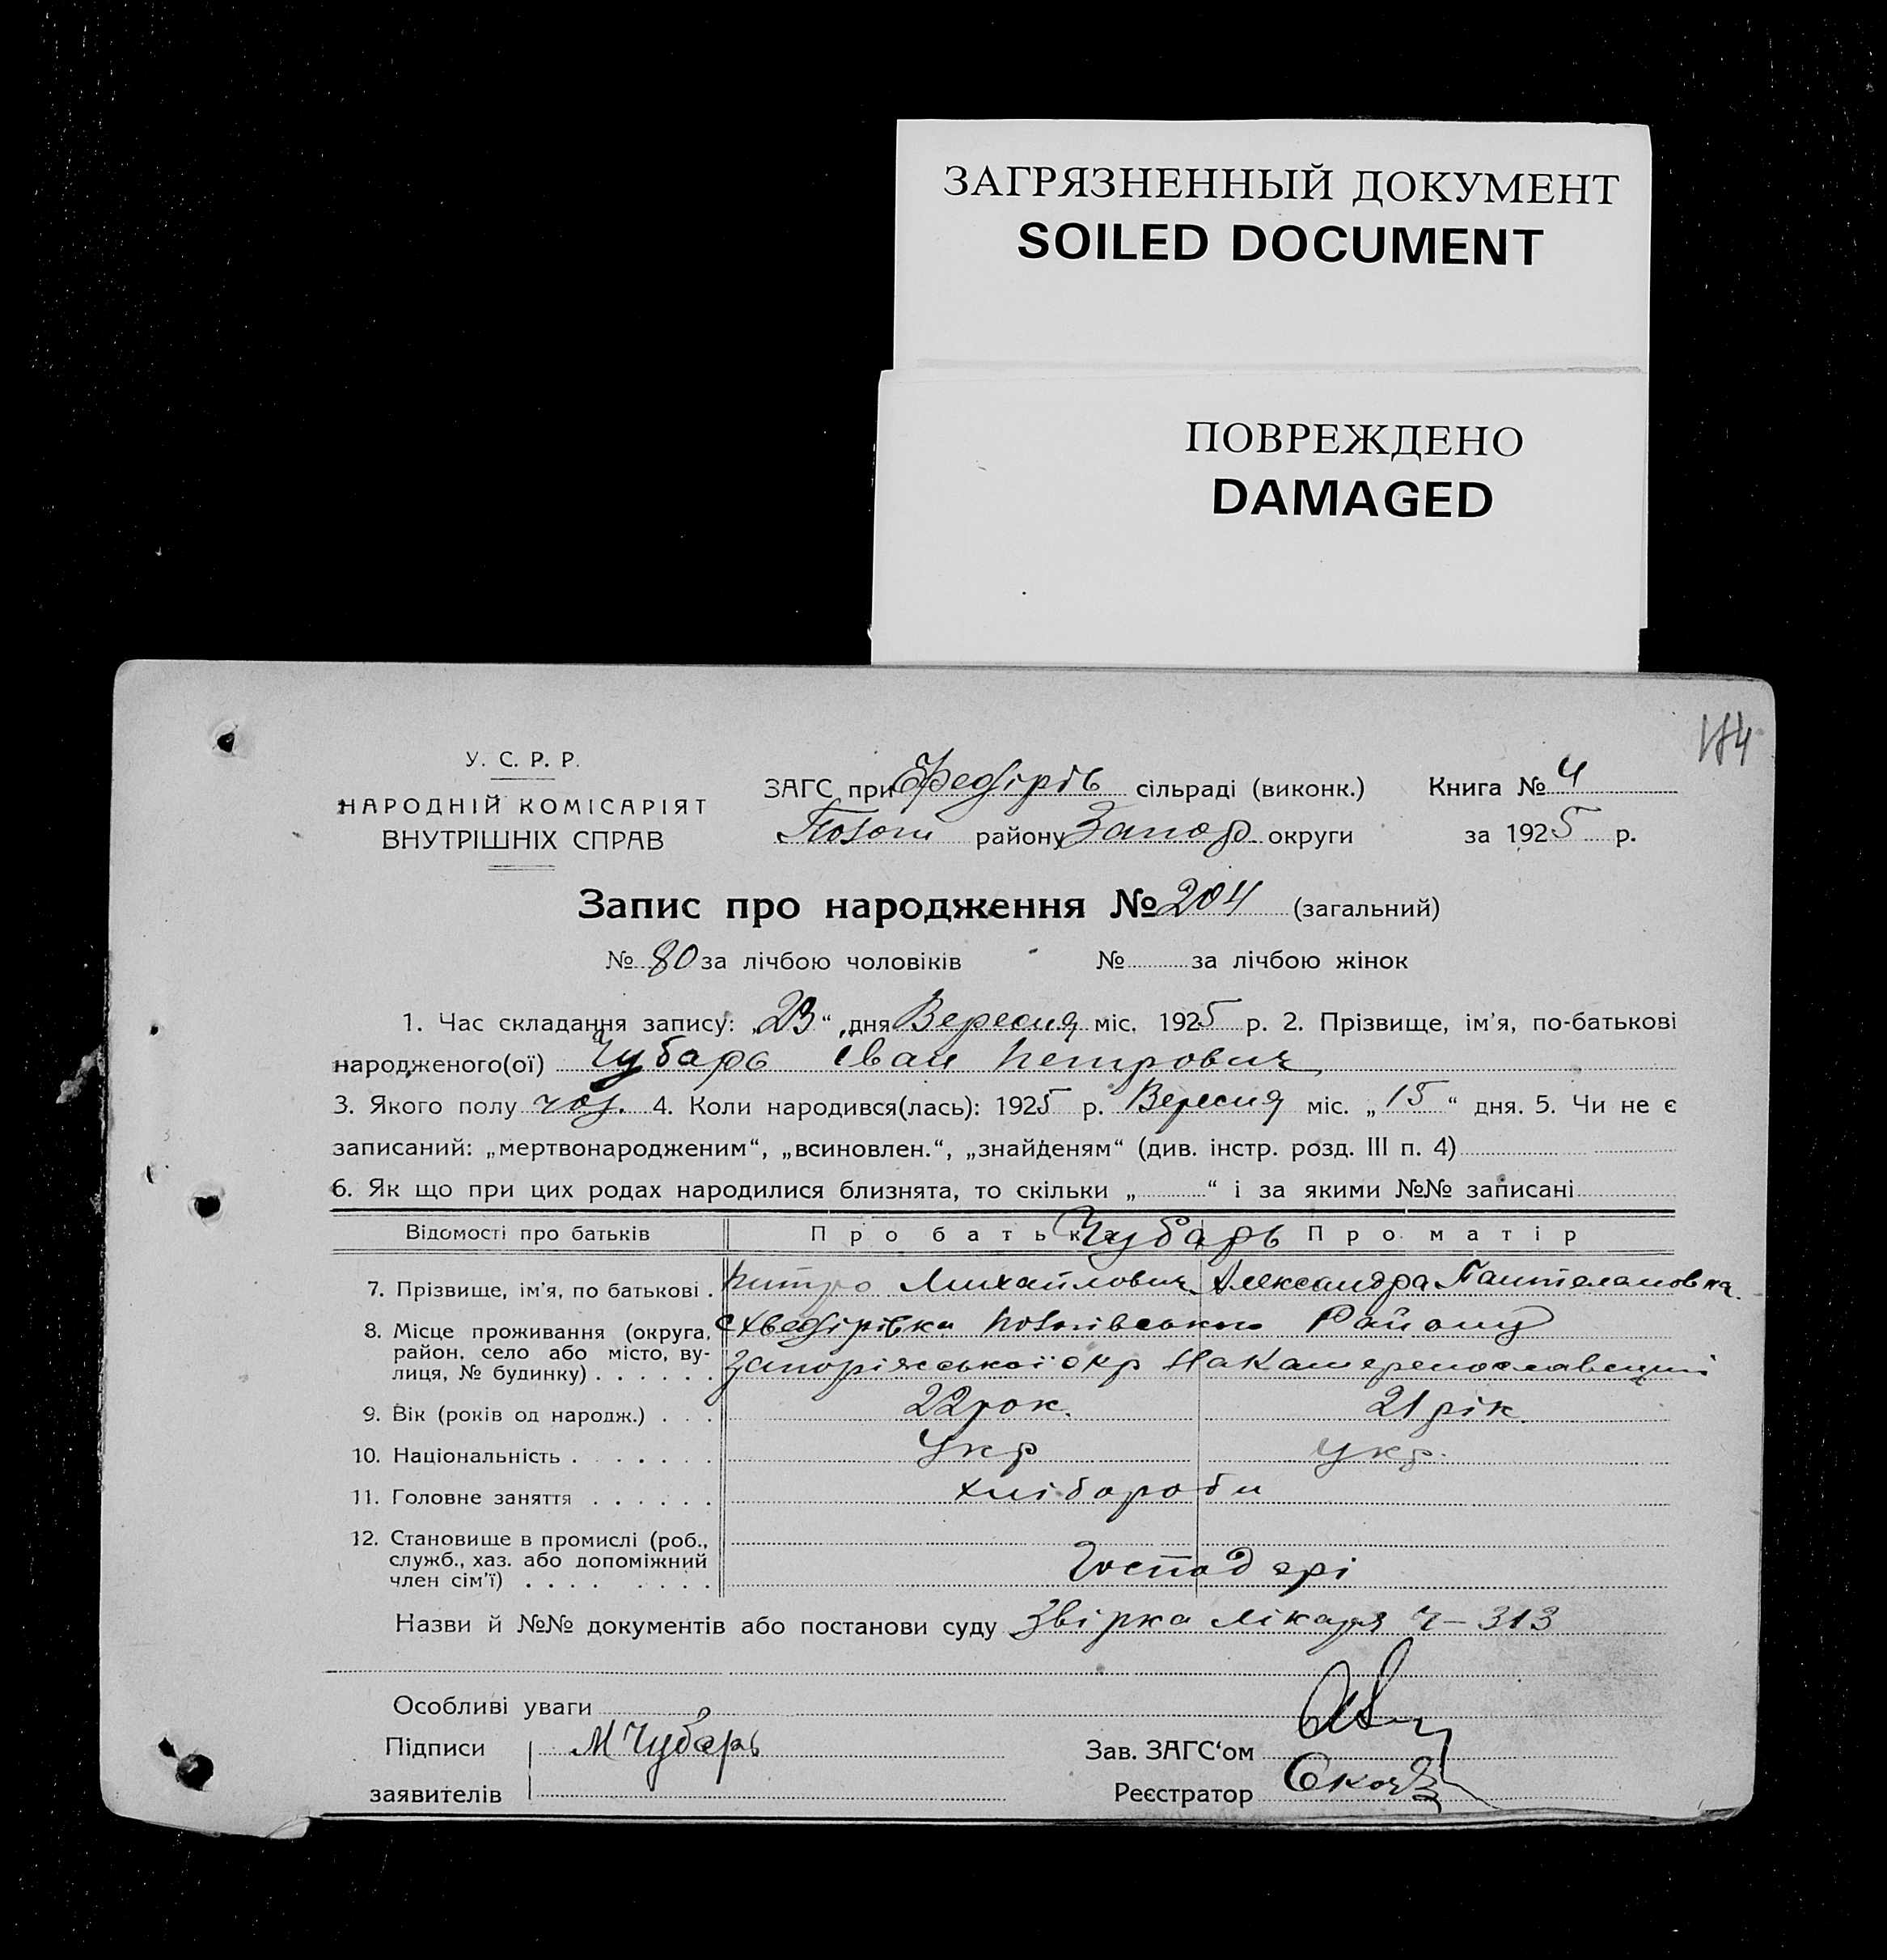 ЗАГРЯЗНЕННЫЙ ДОКУМЕНТ
SOILED DOCUMENT
ПОВРЕЖДЕНО
DAMAGED
У. С. Р. Р.
НАРОДНІЙ КОМІСАРІЯТ
ВНУТРІШНІХ СПРАВ
ЗАГС при Федірів сільраді (виконк.) Книга № 4
району Запор. округи за 1925 р.
Запис про народження № 204 (загальний)
№ 80 за лічбою чоловіків № за лічбою жінок
1. Час складання запису: „23“ дня Вересня міс. 1925 р. 2. Прізвище, ім'я, по-батькові
народженого(ої) Чубарь Іван Петрович
3. Якого полу чол. 4. Коли народився(лась): 1925 р. Вересня міс. „15“ дня. 5. Чи не є
записаний: „мертвонародженим“, „всиновлен.“, „знайденям“ (див. інстр. розд. III п. 4)
6. Як що при цих родах народилися близнята, то скільки „ “ і за якими №№ записані
Відомості про батьків Про батька Чубарь Про матір
7. Прізвище, ім'я, по батькові . Питро Михайлович Александра Пантеламовна
8. Місце проживання (округа, с Хведірівка Району
район, село або місто, ву-
лиця, № будинку) . . . . . . Запоріжської окр На Катеренославещині
9. Вік (років од народж.) . . . 22 рок. 21 рік.
10. Національність . . . . . . . Укр укр.
11. Головне заняття . . . . . . хлібороби
12. Становище в промислі (роб.,
служб., хаз. або допоміжний
член сім'ї) . . . . . . . . Господарі
Назви й №№ документів або постанови суду Звірка лікаря Ч – 313
Особливі уваги
Підписи М Чубарь Зав. ЗАГС'ом
заявителів Реєстратор